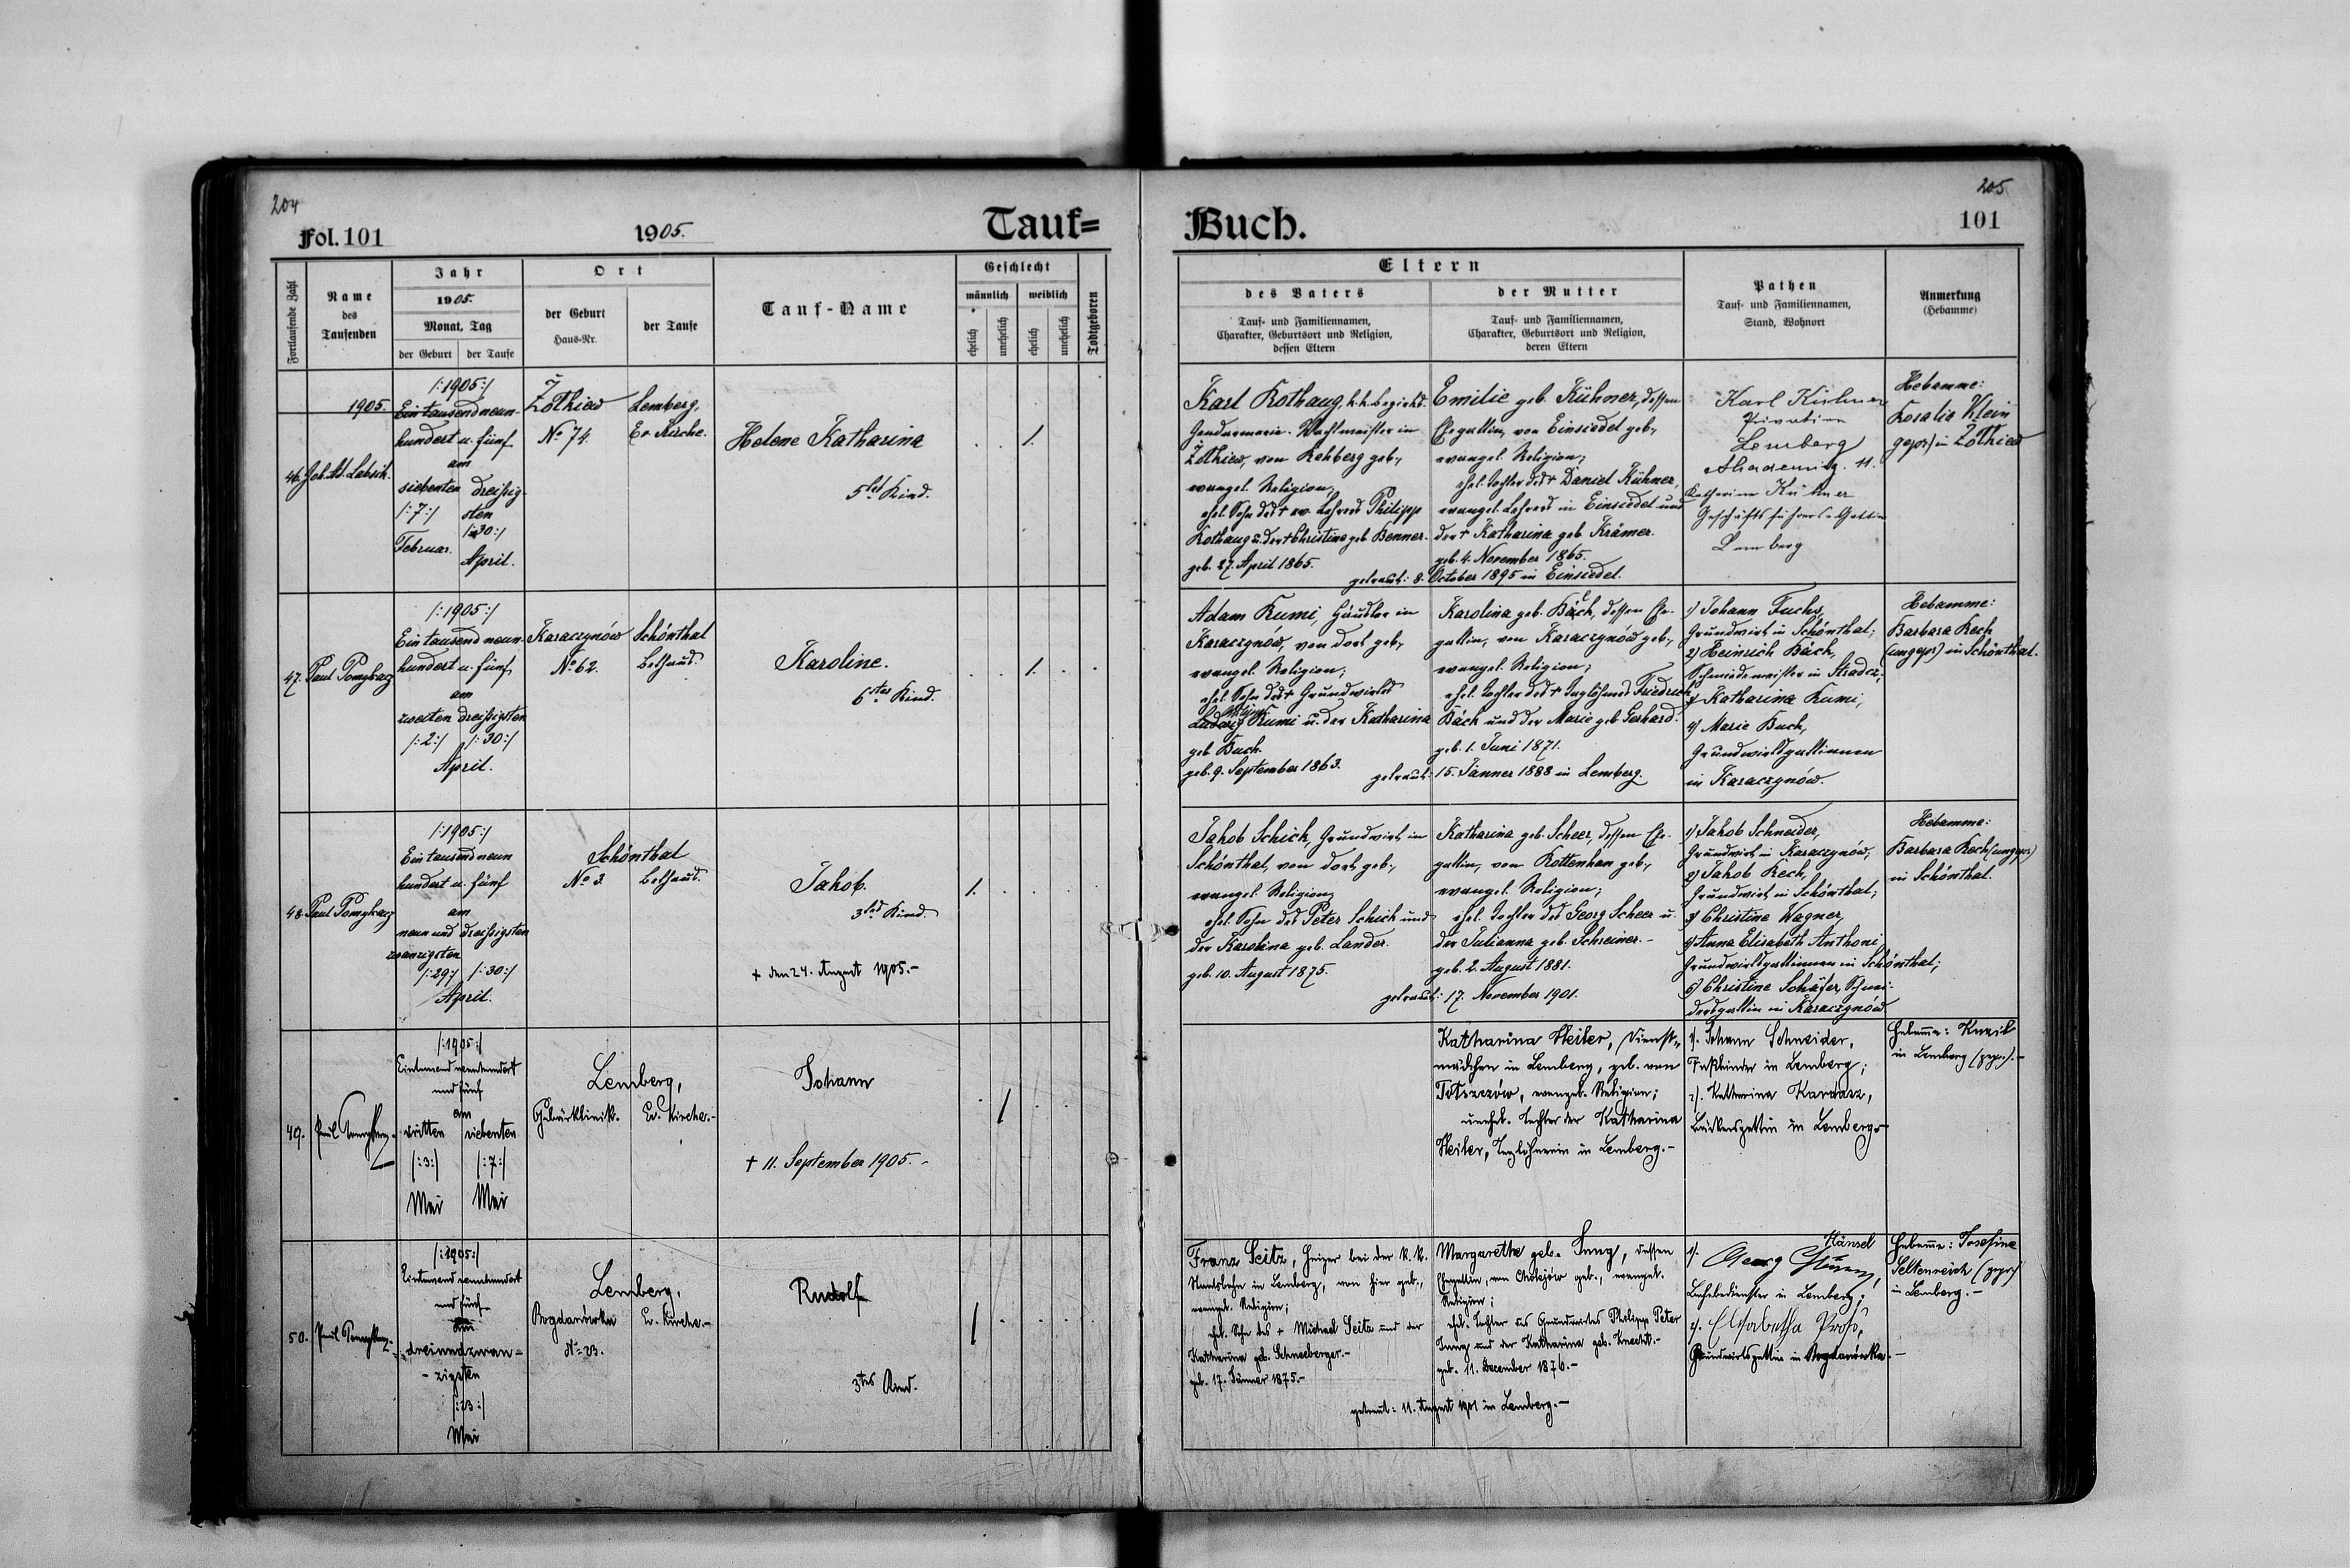 204
Fol. 101
1905.
Tauf=
Fortlaufende Zahl
Name
des
Taufenden
Jahr
1905.
Monat, Tag
der Geburt
der Taufe
Ort
der Geburt
Haus-Nr.
der Taufe
Tauf-Name
Geschlecht
männlich
weiblich
ehelich
unehelich
ehelich
unehelich
Todtgeboren
1905.
46.
/:1905:/
Ein tausend neun-
hundert u. fünf
am
siebenten dreissig-
/:7:/ sten
/:30:/
Februar. April.
Żółkiew
No 74.
Lemberg,
Ev. Kirche.
Helene Katharina
5tes Kind.
1.
47. Paul Pomykacz
/:1905:/
Ein tausend neun-
hundert u. fünf
am
zweiten dreißigsten
/:2:/ /:30:/
April.
Karaczynów
No 62.
Schönthal
Bethaus.
Karoline.
6tes Kind.
1.
48. Paul Pomykacz
/:1905:/
Ein tausend neun
hundert u. fünf
am
neun und dreißigsten
zwanzigsten
/:29:/ /:30:/
April.
Schönthal
No 3. Bethaus.
Jakob.
3tes Kind.
+ den 24. August 1905.-
1.
49.
/:1905:/
Eintausend neunhundert
und fünf
am
dritten siebenten
/:3:/ /:7:/
Mai Mai
Lemberg,
Gebärklinik. Ev. Kirche.-
Johann
+ 11. September 1905.-
1
50.
/:1905:/
Eintausend neunhundert
und fünf
am
dreiundzwan-
-zigsten
/:23:/
Mai
Lemberg,
Bogdanówka Ev. Kirche.-
No 23.
Rudolf
3tes Kind.
1
205
Buch.
101
Eltern
des Vaters
Tauf- und Familiennamen,
Charakter, Geburtsort und Religion,
dessen Eltern
der Mutter
Tauf- und Familiennamen,
Charakter, Geburtsort und Religion,
deren Eltern
Pathen
Tauf- und Familiennamen,
Stand, Wohnort
Anmerkung
(Hebamme)
Karl Rothaug, k.k. Bezirks-
Gendarmerie-Wachtmeister in
Żółkiew, von Rehberg geb.,
evangel. Religion;
ehel. Sohn des + ev. Lehrers Philipp
Rothaug u. der + Christine geb. Benner.
geb. 27. April 1865.
Emilie geb. Kühner, dessen
Ehegattin, von Einsiedel geb.,
evangel. Religion;
ehel. Tochter des + Daniel Kühner,
evangel. Lehrers in Einsiedel und
der + Katharina geb. Krämer.
geb. 4. November 1865.
getraut: 8. October 1895 in Einsiedel.
Karl Kühner
Privatier
Lemberg
Akademicg. 11.
Katharina Kühner
Geschäftsführers-Gattin
Lemberg
Hebamme:
Rosalia Klein
(gepr.) in Żółkiew
Adam Kumi, Häusler in
Karaczynow, von dort geb.,
evangel. Religion;
ehel. Sohn des + Grundwirtes
Ludwig Kumi u. der Katharina
geb. Buch.
geb. 9. September 1863.
Karolina geb. Bäch, dessen Ehe-
gattin, von Karaczynów geb.,
evangel. Religion;
ehel. Tochter des + Taglöhners Friedrich
Bäch und der Marie geb. Gerhard.
geb. 1. Juni 1871.
getraut: 15. Jänner 1888 in Lemberg.
1) Johann Fuchs,
Grundwirt in Schönthal;
2) Heinrich Bäch,
Schmiedemeister in Stradcz;
3) Katharina Kumi,
4) Marie Buch,
Grundwirtsgattinnen
in Karaczynów.
Hebamme:
Barbara Rech
(ungepr.) in Schönthal.
Jakob Schick, Grundwirt in
Schönthal, von dort geb.,
evangel. Religion;
ehel. Sohn des Peter Schick und
der Karolina geb. Lander.
geb. 10. August 1875.
Katharina geb. Scheer, dessen Ehe-
gattin, von Rottenhan geb.,
evangel. Religion;
ehel. Tochter des Georg Scheer u.
der Julianna geb. Schreiner.-
geb. 2. August 1881.
getraut: 17. November 1901.
1) Jakob Schneider,
Grundwirt in Karaczynów;
2) Jakob Rech,
Grundwirt in Schönthal;
3) Christine Wagner,
4) Anna Elisabeth Anthoni,
Grundwirtsgattinnen in Schönthal;
5) Christine Schäfer, Schnei-
dersgattin in Karaczynów
Hebamme:
Barbara Rech (ungepr.)
in Schönthal.
Katharina Heiler, Dienst-
mädchen in Lemberg, geb. von
evangel. Religion;
unehel. Tochter der Katharina
Heiler, Taglöhnerin in Lemberg.-
1). Johann Schneider,
in Lemberg;
2). Katharina Kardasz,
Bäckersgattin in Lemberg.-
Hebamme:
in Lemberg (gepr.).-
Franz Seitz, Heizer bei der k.k.
Staatsbahn in Lemberg, von hier geb.,
evangel. Religion;
ehel. Sohn des + Michael Seitz und der
Katharina geb. Schneeberger.-
geb. 17. Jänner 1875.-
Margarethe geb. Jung, dessen
Ehegattin, von geb., evangel.
Religion;
ehel. Tochter des Grundwirtes Philipp Peter
Jung und der Katharina geb. Knecht.-
geb. 11. December 1876.-
getraut: 11. August 1901 in Lemberg.-
1). Hänsel
Georg
in Lemberg;
2). Elisabetha
Grundwirtsgattin in Bogdanówka.-
Hebamme: Josefine
Seltenreich (gepr.)
in Lemberg.-